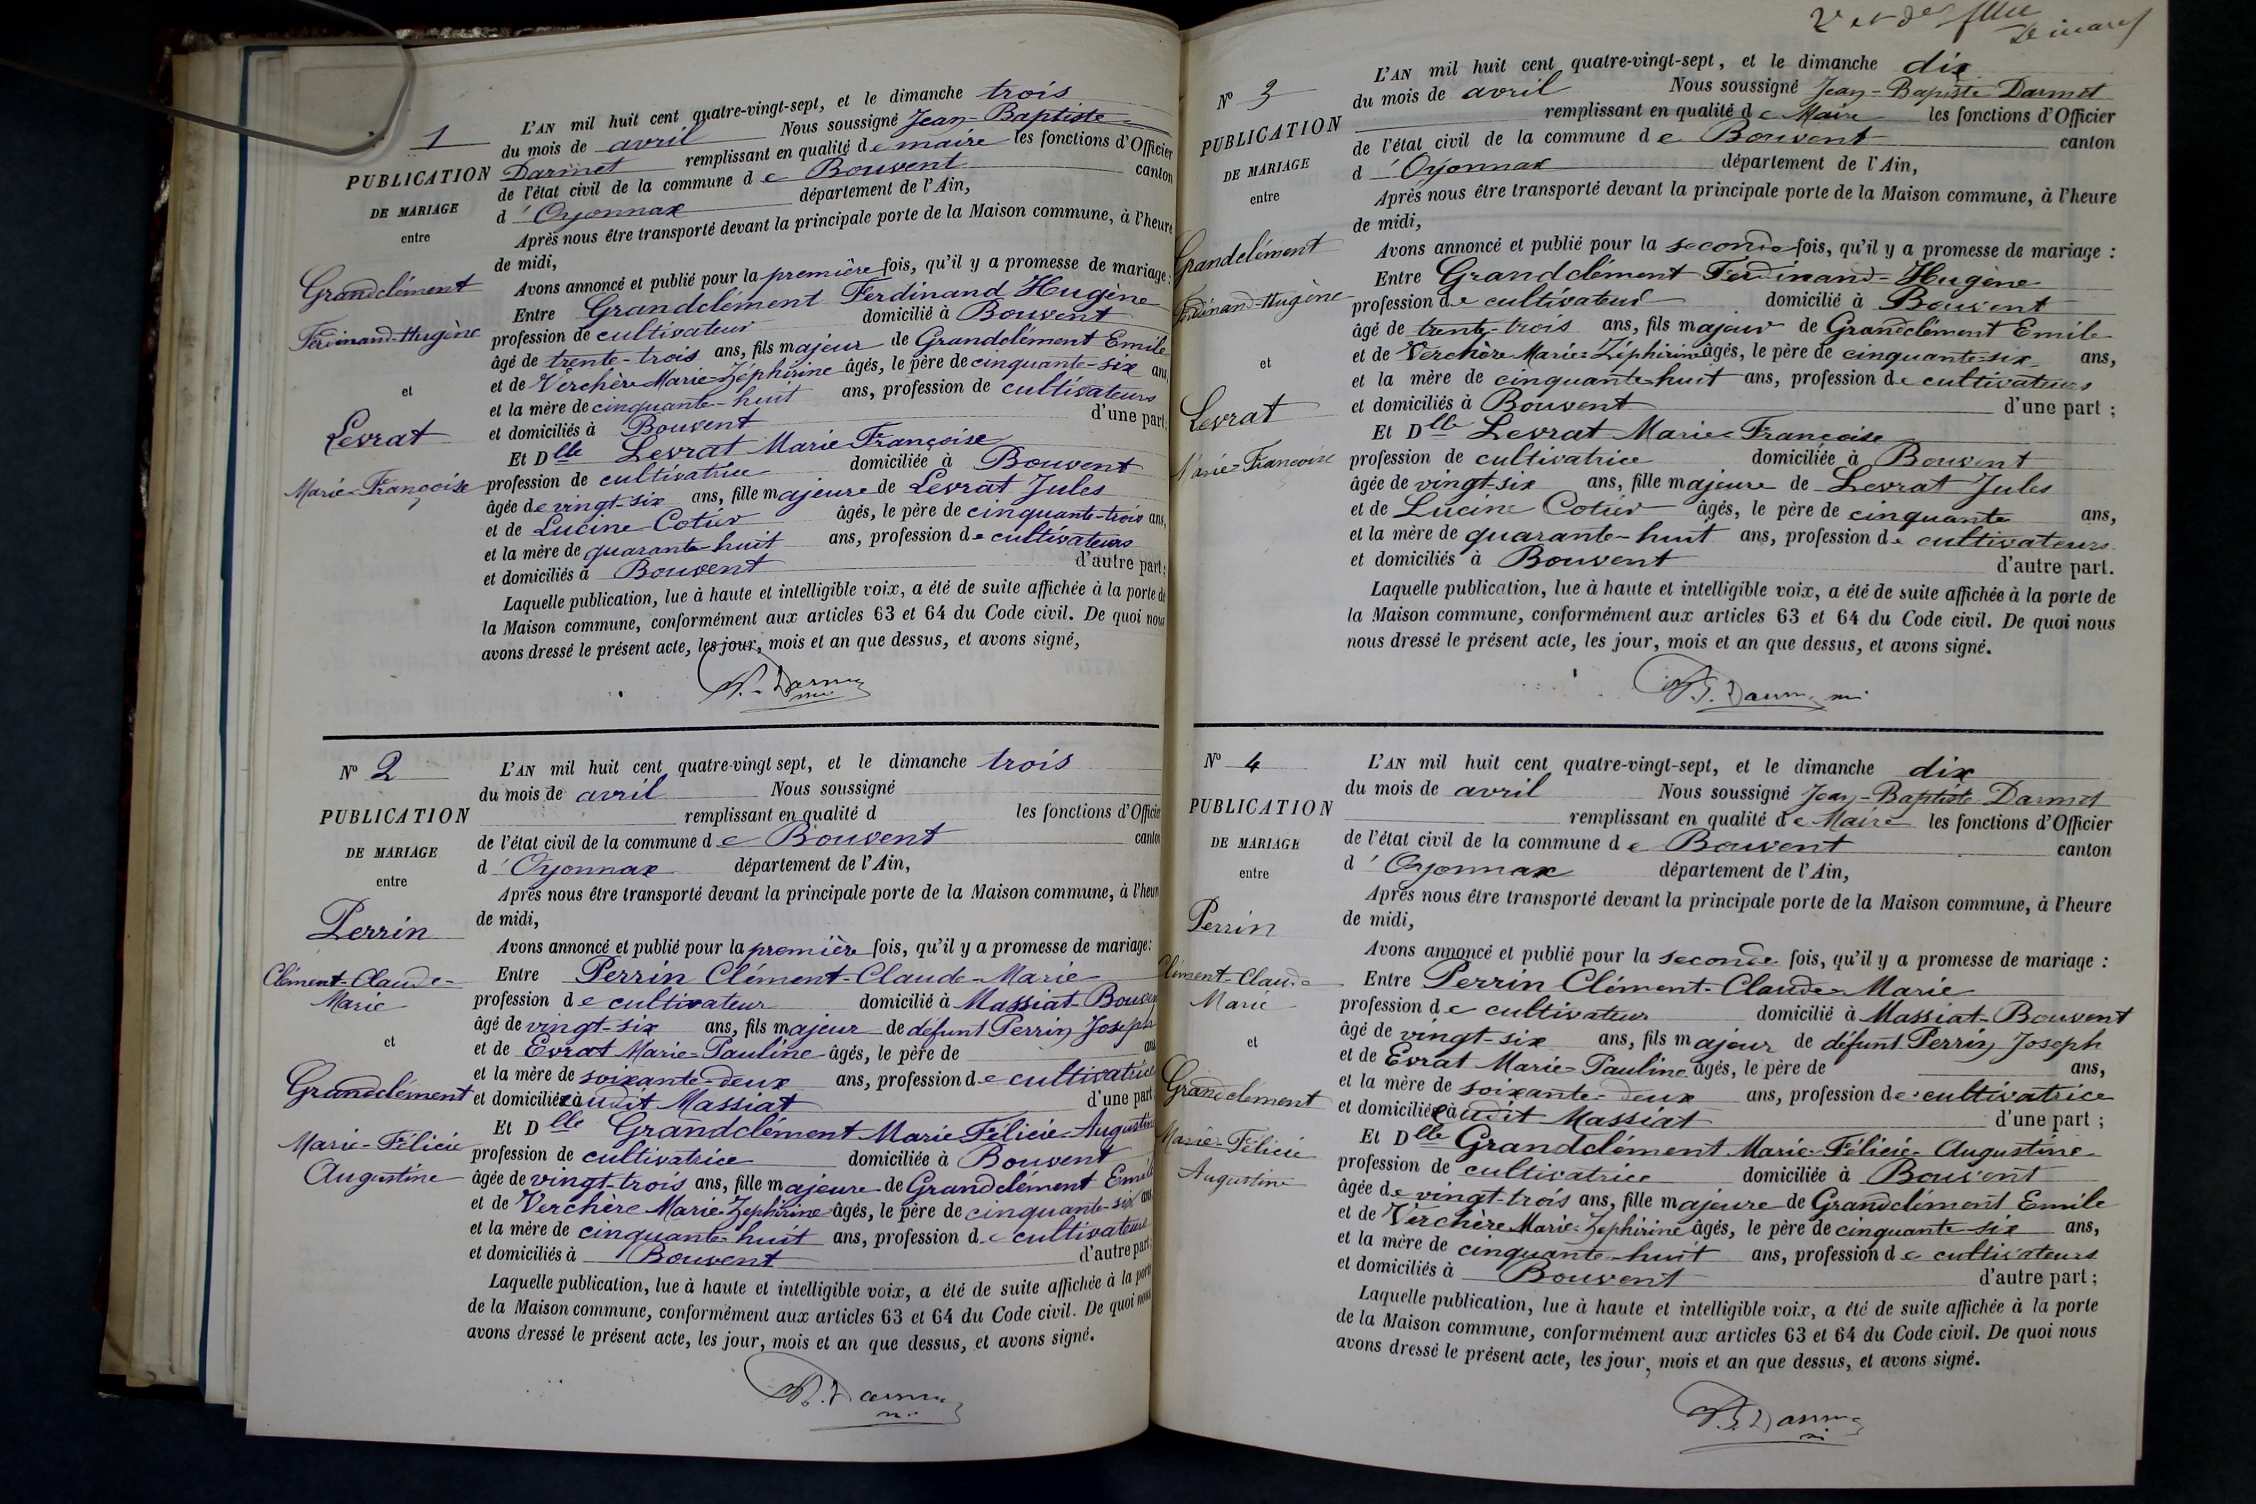 1
PUBLICATION
DE MARIAGE
entre
Grandclément
Ferdinand-Hugène
et
Levrat
Marie-Françoise
L'AN mil huit cent quatre-vingt-sept, et le dimanche trois
du mois de avril Nous soussigné Jean-Baptiste
Darmet remplissant en qualité de maire les fonctions d'Officier
de l'état civil de la commune de Bouvent canton
d'Oyonnax département de l'Ain,
Après nous être transporté devant la principale porte de la Maison commune, à l'heure
de midi,
Avons annoncé et publié pour la première fois, qu'il y a promesse de mariage :
Entre Grandclément Ferdinand Hugène
profession de cultivateur domicilié à Bouvent
âgé de trente-trois ans, fils majeur de Grandclément Emile
et de Verchère Marie-Zéphirine âgés, le père de cinquante-six ans,
et la mère de cinquante-huit ans, profession de cultivateurs
et domiciliés à Bouvent d'une part;
Et Dlle Levrat Marie Françoise
profession de cultivatrice domiciliée à Bouvent
âgée de vingt-six ans, fille majeure de Levrat Jules
et de Lucine Cotier âgés, le père de cinquante-trois ans,
et la mère de quarante-huit ans, profession de cultivateurs
et domiciliés à Bouvent d'autre part;
Laquelle publication, lue à haute et intelligible voix, a été de suite affichée à la porte de
la Maison commune, conformément aux articles 63 et 64 du Code civil. De quoi nous
avons dressé le présent acte, les jour, mois et an que dessus, et avons signé,
Nº 2
PUBLICATION
DE MARIAGE
entre
Perrin
Clément-Claude-
Marie
et
Grandclément
Marie-Félicie
Augustine
L'AN mil huit cent quatre-vingt sept, et le dimanche trois
du mois de avril Nous soussigné
remplissant en qualité d les fonctions d'Officier
de l'état civil de la commune de Bouvent canton
d'Oyonnax département de l'Ain,
Après nous être transporté devant la principale porte de la Maison commune, à l'heure
de midi,
Avons annoncé et publié pour la première fois, qu'il y a promesse de mariage:
Entre Perrin Clément-Claude-Marie
profession de cultivateur domicilié à Massiat-Bouvent
âgé de vingt-six ans, fils majeur de défunt Perrin Joseph
et de Evrat Marie-Pauline âgés, le père de ans
et la mère de soixante-deux ans, profession de cultivatrice
et domiciliée audit Massiat d'une part
Et Dlle Grandclément Marie Félicie-Augustine
profession de cultivatrice domiciliée à Bouvent
âgée de vingt-trois ans, fille majeure de Grandclément Emile
et de Verchère Marie-Zephirine âgés, le père de cinquante-six ans
et la mère de cinquante-huit ans, profession de cultivateurs
et domiciliés à Bouvent d'autre part;
Laquelle publication, lue à haute et intelligible voix, a été de suite affichée à la porte
de la Maison commune, conformément aux articles 63 et 64 du Code civil. De quoi nous
avons dressé le présent acte, les jour, mois et an que dessus, et avons signé.
Nº 3
PUBLICATION
DE MARIAGE
entre
Grandclément
Ferdinand-Hugène
et
Levrat
Marie-Françoise
L'AN mil huit cent quatre-vingt-sept, et le dimanche dix
du mois de avril Nous soussigné Jean-Baptiste Darmet
remplissant en qualité de Maire les fonctions d'Officier
de l'état civil de la commune de Bouvent canton
d'Oyonnax département de l'Ain,
Après nous être transporté devant la principale porte de la Maison commune, à l'heure
de midi,
Avons annoncé et publié pour la seconde fois, qu'il y a promesse de mariage :
Entre Grandclément Ferdinand-Hugène
profession de cultivateur domicilié à Bouvent
âgé de trente-trois ans, fils majeur de Grandclément Emile
et de Verchère Marie-Zéphirine âgés, le père de cinquante-six ans,
et la mère de cinquante-huit ans, profession de cultivateurs
et domiciliés à Bouvent d'une part ;
Et Dlle Levrat Marie Françoise
profession de cultivatrice domiciliée à Bouvent
âgée de vingt-six ans, fille majeure de Levrat Jules
et de Lucine Cotier âgés, le père de cinquante ans,
et la mère de quarante-huit ans, profession de cultivateurs
et domiciliés à Bouvent d'autre part.
Laquelle publication, lue à haute et intelligible voix, a été de suite affichée à la porte de
la Maison commune, conformément aux articles 63 et 64 du Code civil. De quoi nous
nous dressé le présent acte, les jour, mois et an que dessus, et avons signé.
Nº 4
PUBLICATION
DE MARIAGE
entre
Perrin
Clément-Claude
Marie
et
Grandclément
Marie-Félicie
Augustine
L'AN mil huit cent quatre-vingt-sept, et le dimanche dix
du mois de avril Nous soussigné Jean-Baptiste Darmet
remplissant en qualité de Maire les fonctions d'Officier
de l'état civil de la commune de Bouvent canton
d'Oyonnax département de l'Ain,
Après nous être transporté devant la principale porte de la Maison commune, à l'heure
de midi,
Avons annoncé et publié pour la seconde fois, qu'il y a promesse de mariage :
Entre Perrin Clément-Claude-Marie
profession de cultivateur domicilié à Massiat-Bouvent
âgé de vingt-six ans, fils majeur de défunt Perrin Joseph
et de Evrat Marie-Pauline âgés, le père de ans,
et la mère de soixante-deux ans, profession de cultivatrice
et domiciliée audit Massiat d'une part ;
Et Dlle Grandclément Marie-Félicie-Augustine
profession de cultivatrice domiciliée à Bouvent
âgée de vingt-trois ans, fille majeure de Grandclément Emile
et de Verchère Marie-Zephirine âgés, le père de cinquante-six ans,
et la mère de cinquante-huit ans, profession de cultivateurs
et domiciliés à Bouvent d'autre part ;
Laquelle publication, lue à haute et intelligible voix, a été de suite affichée à la porte
de la Maison commune, conformément aux articles 63 et 64 du Code civil. De quoi nous
avons dressé le présent acte, les jour, mois et an que dessus, et avons signé.